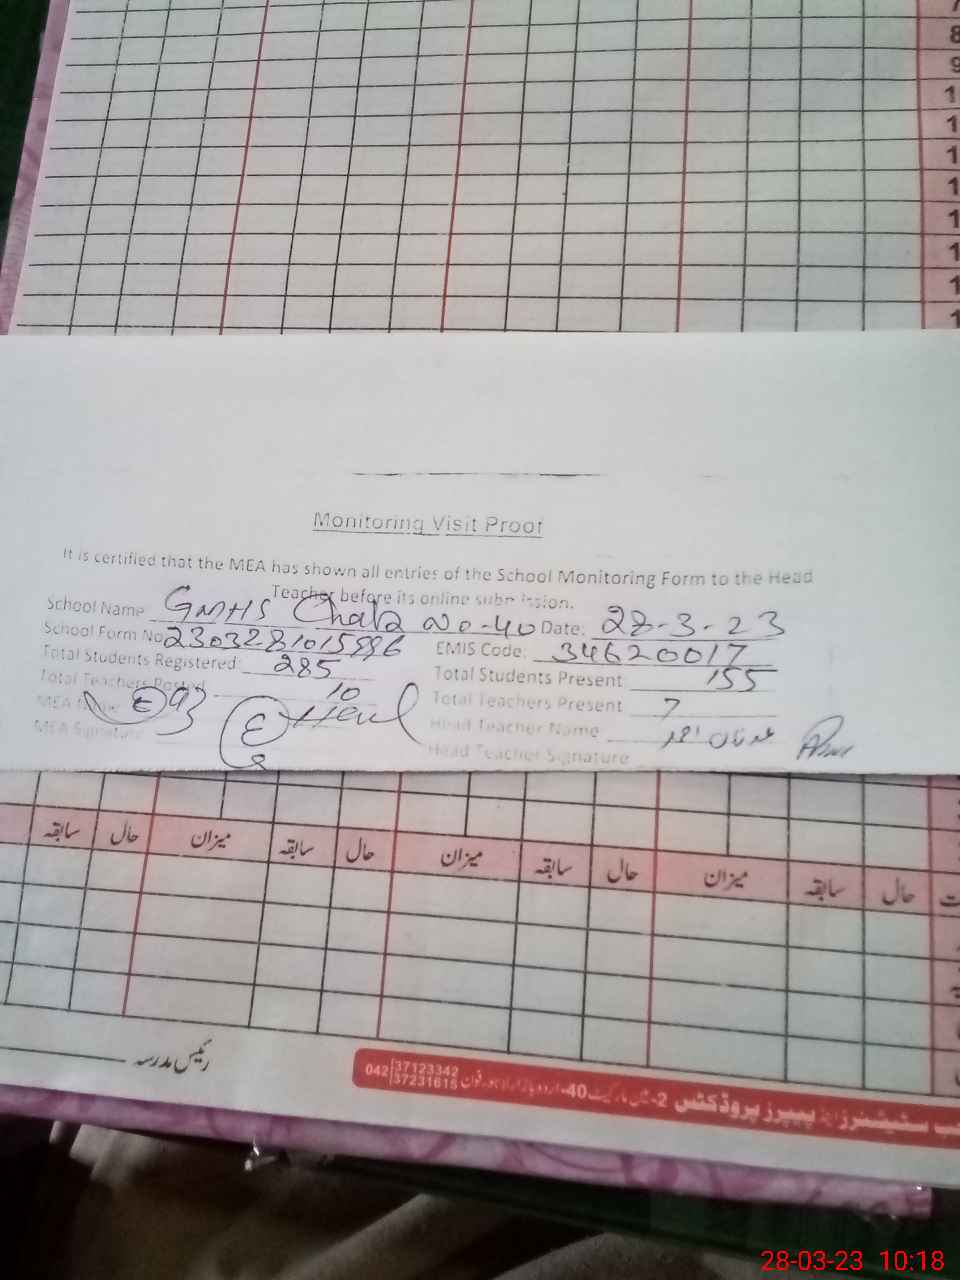 7
8
9
1
1
1
1
1
1
1
1
Monitoring Visit Proof
It is certified that the MEA has shown all entries of the School Monitoring Form to the Head
Teacher before its online submission.
School Name GMHS Chak No-40 Date: 28-3-23
School Form No 2303281015 EMIS Code: 34620017
Total Students Registered: 285 Total Students Present 155
Total Teachers Posted 10 Total Teachers Present 7
MEA Name Head Teacher Name عدنان احمد
MEA Signature Head Teacher Signature
سابقہ حال میزان سابقہ حال میزان سابقہ حال میزان سابقہ حال
رئیس مدرسہ
042 37123342
37231615
پیپرز پروڈکٹس 2- 40-اردو بازار لاہور فون
28-03-23 10:18